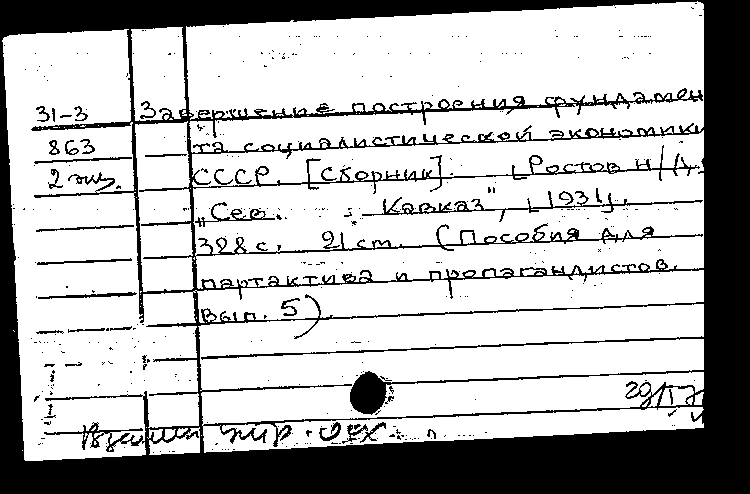 31-3 Завершение построения фундамен
863 та социалистической экономики
2 экз. СССР. [Сборник]. [Ростов н/Д.,
„Сев. Кавказ", [1931].
328 с. 21 ст. (Пособия для
партактива и пропагандистов.
Вып. 5).